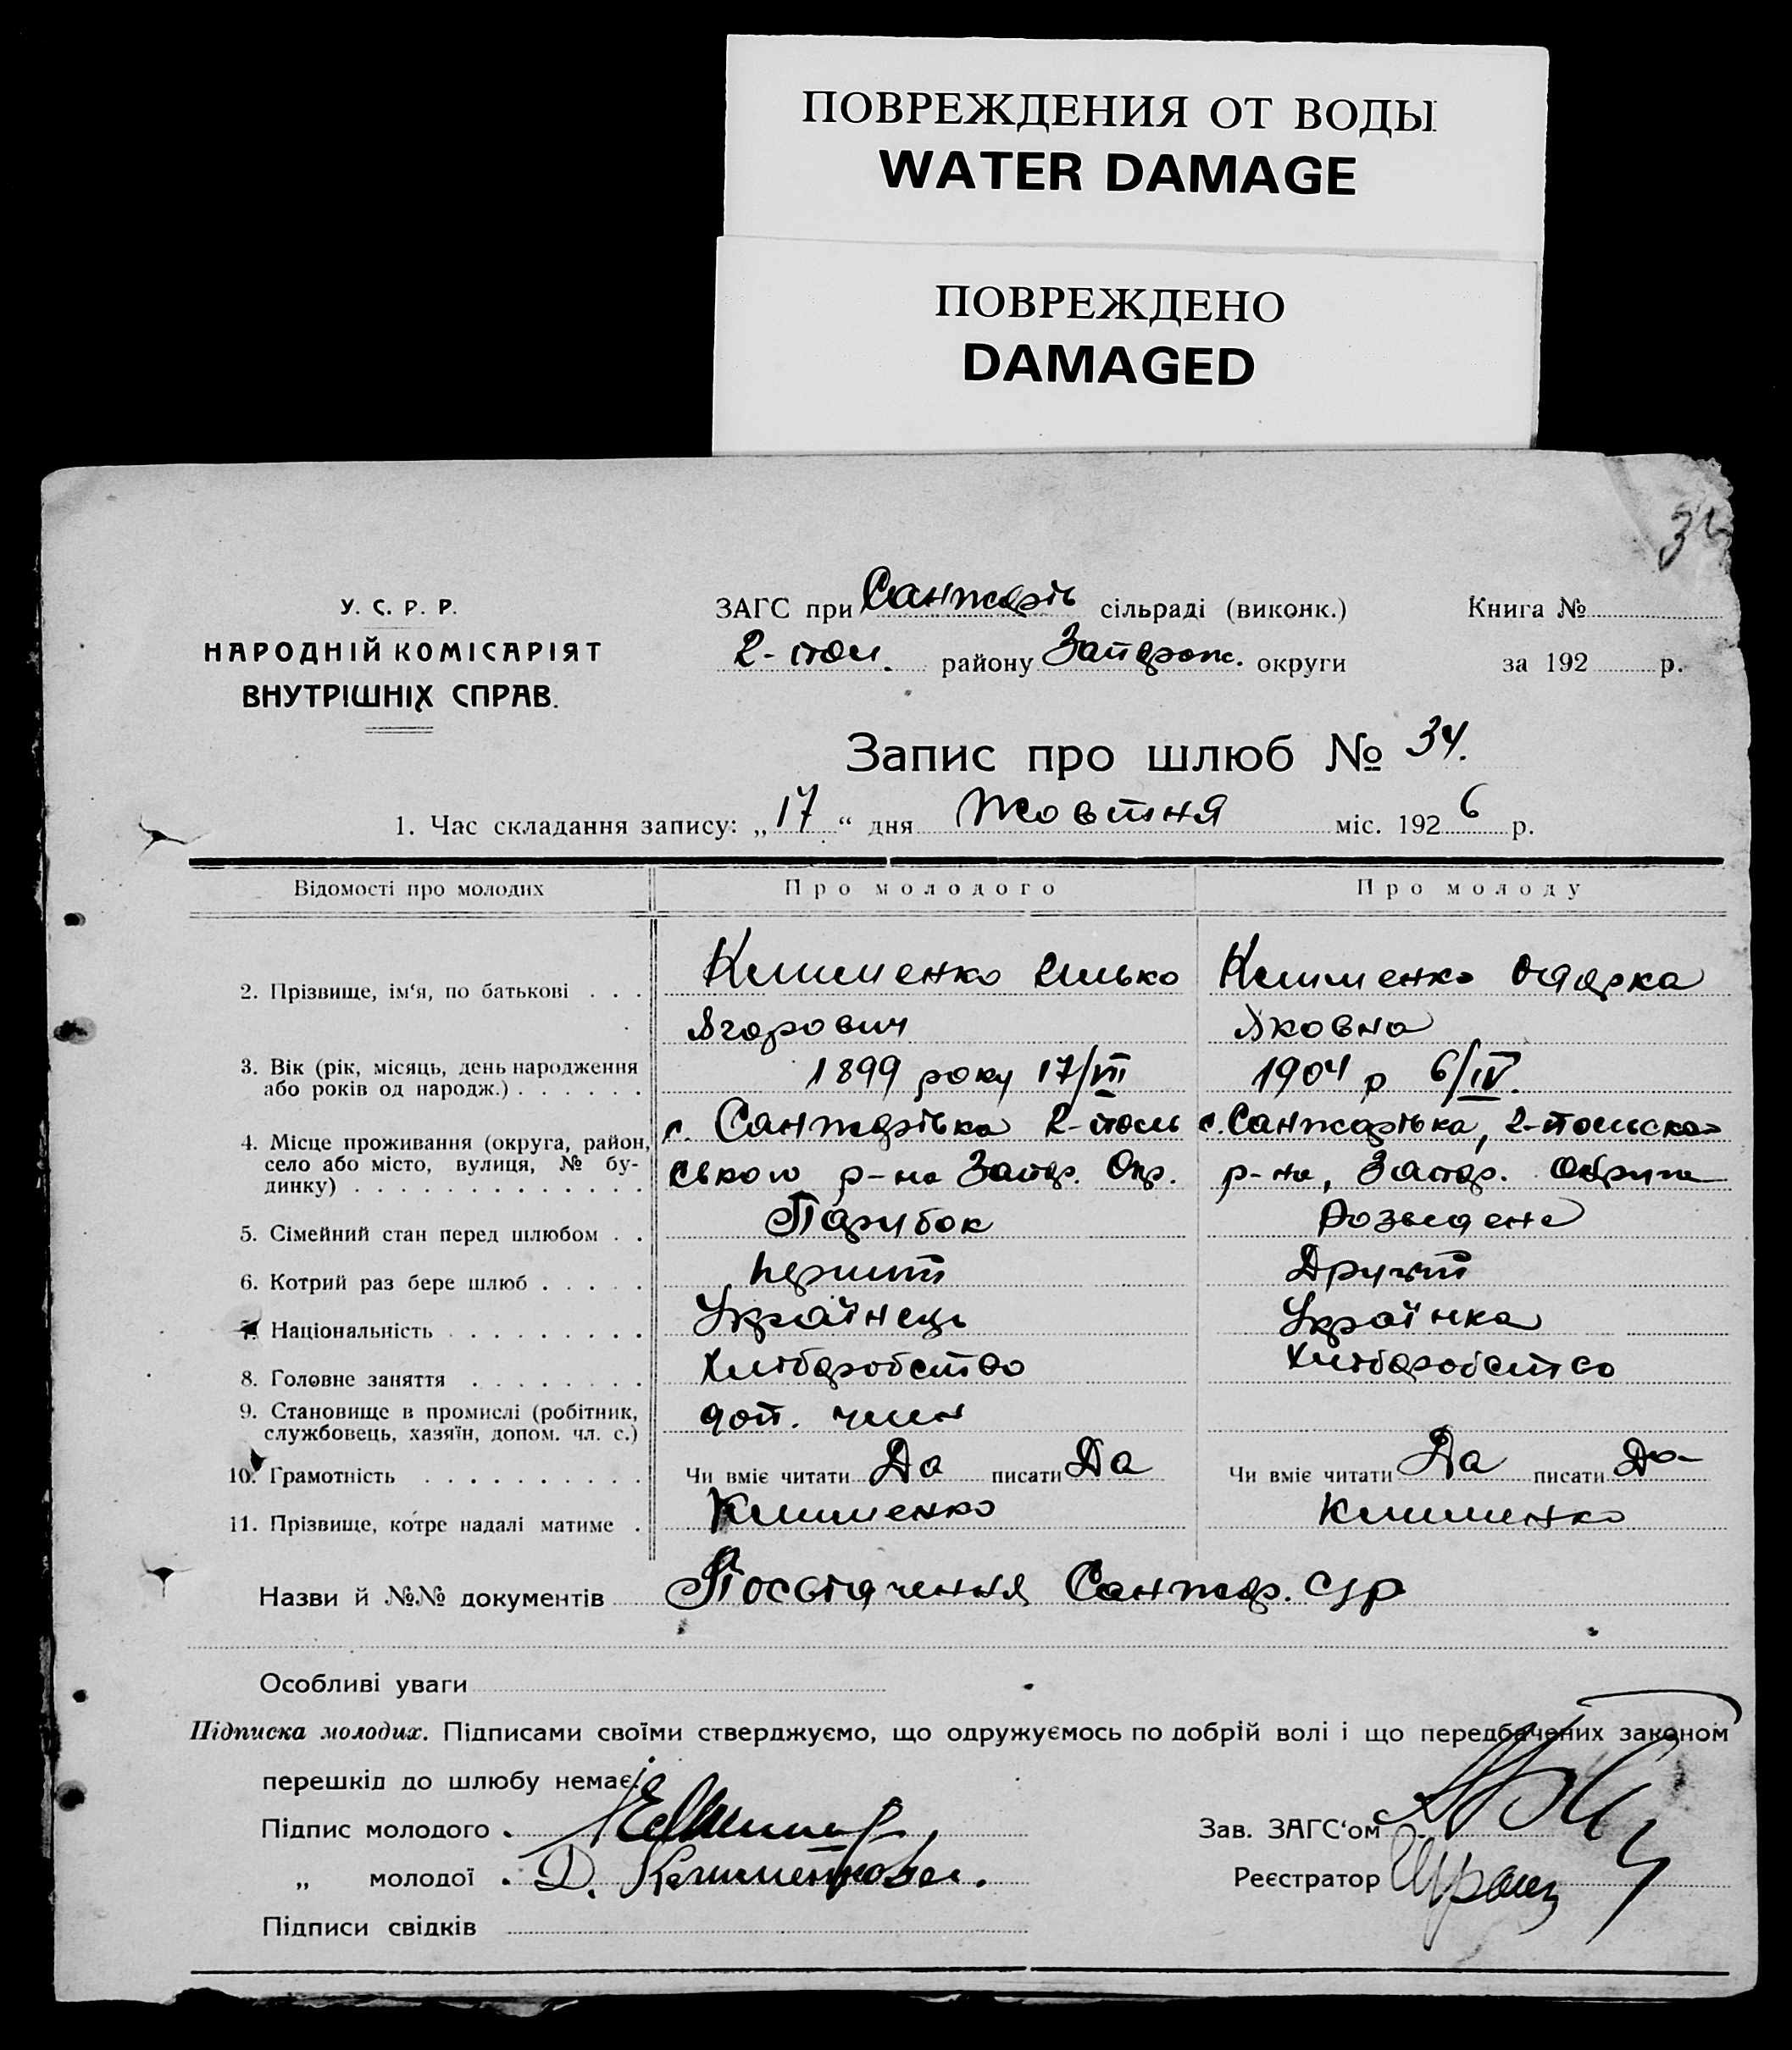 ПОВРЕЖДЕНИЯ ОТ ВОДЫ
WATER DAMAGE
ПОВРЕЖДЕНО
DAMAGED
34
У. С. Р. Р.
НАРОДНІЙ КОМІСАРІЯТ
ВНУТРІШНІХ СПРАВ.
ЗАГС при Санжарів сільраді (виконк.) Книга №
2-пол. району Запорож. округи за 192 р.
Запис про шлюб № 34.
1. Час складання запису: „17“ дня Жовтня міс. 1926 р.
Відомості про молодих Про молодого Про молоду
2. Прізвище, ім‘я, по батькові . . . Клименко Ілько Клименко Одарка
Ягорович Яковна
3. Вік (рік, місяць, день народження або років од народж.) . . . . . . 1899 року 17/VII 1904 р 6/IV.
4. Місце проживання (округа, район, село або місто, вулиця, № будинку) . . . . . . . . . . . . . с. Санжарівка 2-поль с. Санжарівка, 2-польска
ського р-на Запор. Окр. р-на, Запор. Округи
5. Сімейний стан перед шлюбом . . Парубок Розведена
6. Котрий раз бере шлюб . . . . . Перший Другий
7. Національність . . . . . . . . . Українець Українка
8. Головне заняття . . . . . . . . Хліборобство Хліборобство
9. Становище в промислі (робітник, службовець, хазяїн, допом. чл. с.) доп. член
10. Грамотність . . . . . . . . . . Чи вміє читати Да писати Да Чи вміє читати Да писати Да
11. Прізвище, котре надалі матиме . Клименко Клименко
Назви й №№ документів Посвідчення Санжар. с/р
Особливі уваги
Підписка молодих. Підписами своїми стверджуємо, що одружуємось по добрій волі і що передбачених законом
перешкід до шлюбу немає.
Підпис молодого . Зав. ЗАГС‘ом
„ молодої . Д. Клименкова. Реєстратор
Підписи свідків